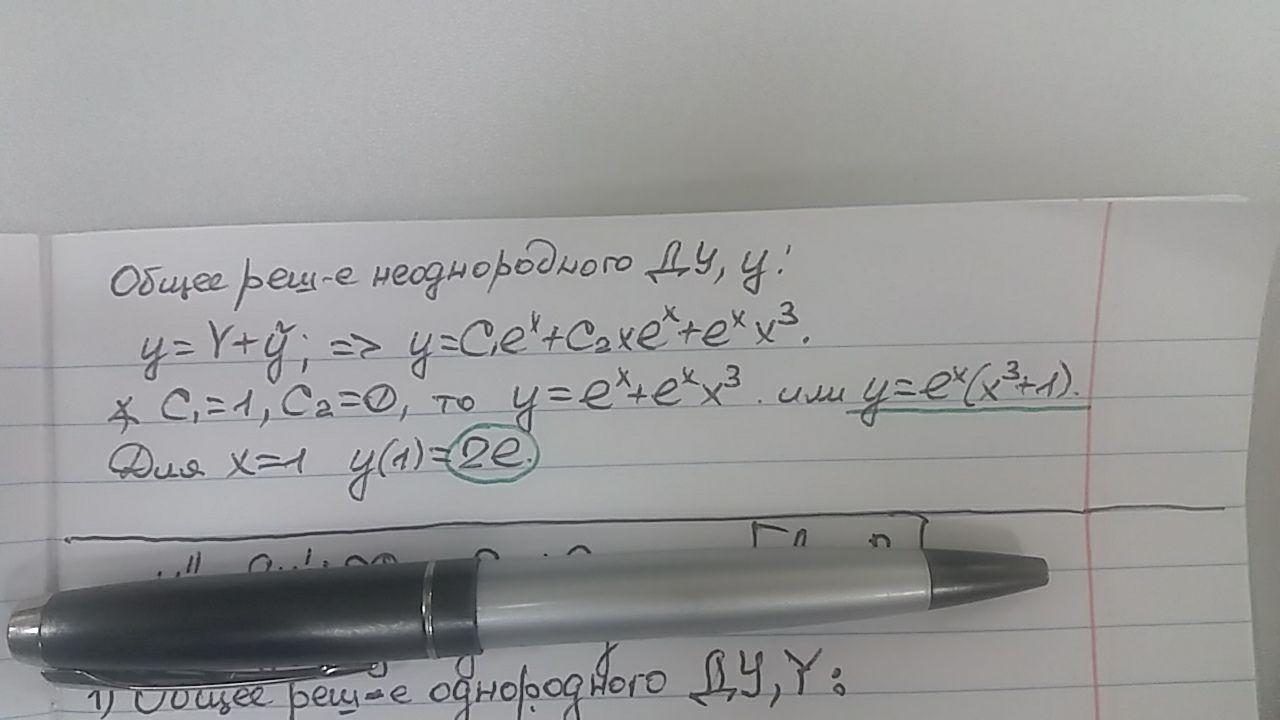 Общее реш-е неоднородного ДУ, y:
y = Y + ỹ; => y = C₁eˣ + C₂xeˣ + eˣx³.
* C₁=1, C₂=0, то y = eˣ + eˣx³. или y = eˣ(x³+1).
Для x=1 y(1) = 2e.
1) Общее реш-е однородного ДУ, Y: